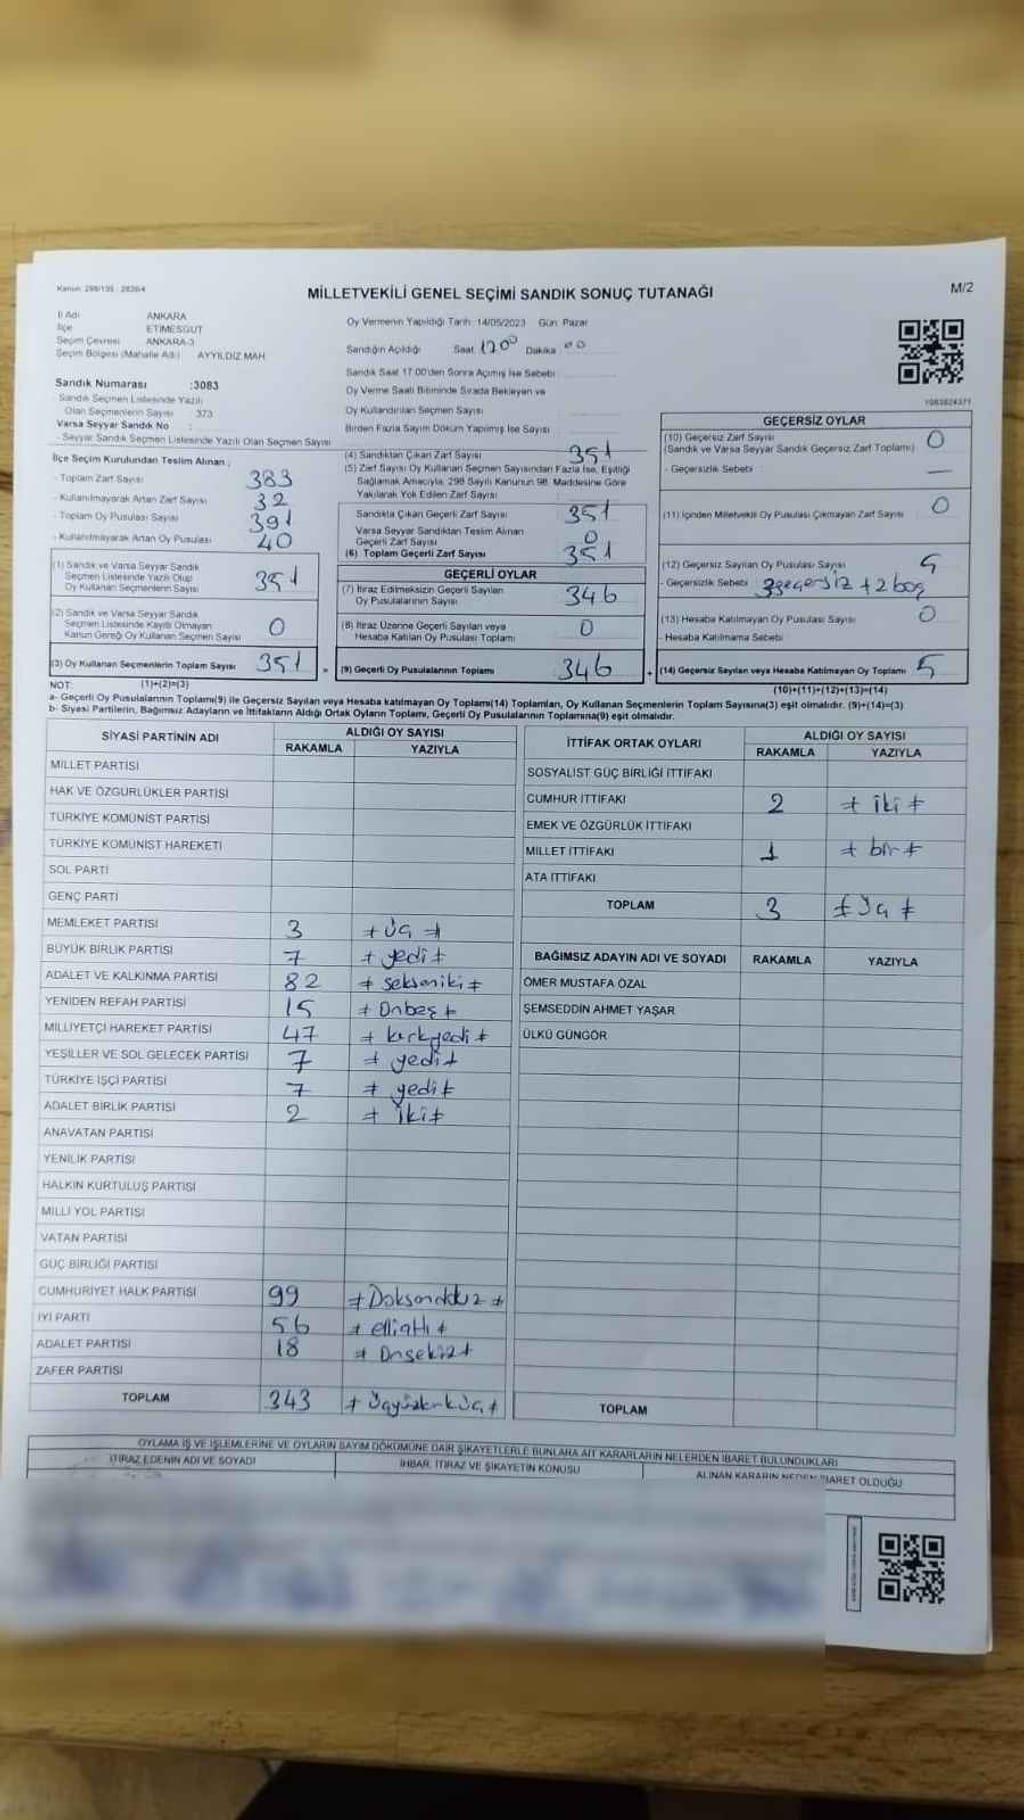 Kanun: 298/135 - 2839/4
MİLLETVEKİLİ GENEL SEÇİMİ SANDIK SONUÇ TUTANAĞI
M/2
İl Adı ANKARA
İlçe ETİMESGUT
Seçim Çevresi ANKARA-3
Seçim Bölgesi (Mahalle Adı) AYYILDIZ MAH
Sandık Numarası :3083
Sandık Seçmen Listesinde Yazılı
Olan Seçmenlerin Sayısı 373
Varsa Seyyar Sandık No :
- Seyyar Sandık Seçmen Listesinde Yazılı Olan Seçmen Sayısı
Oy Vermenin Yapıldığı Tarih: 14/05/2023 Gün: Pazar
Sandığın Açıldığı Saat Dakika 00
Sandık Saat 17.00'den Sonra Açımış İse Sebebi
Oy Verme Saati Bitiminde Sırada Bekleyen ve
Oy Kullandırılan Seçmen Sayısı
Birden Fazla Sayım Döküm Yapılmış İse Sayısı
İlçe Seçim Kurulundan Teslim Alınan ;
- Toplam Zarf Sayısı 383
- Kullanılmayarak Artan Zarf Sayısı 32
- Toplam Oy Pusulası Sayısı 391
- Kullanılmayarak Artan Oy Pusulası 40
(1) Sandık ve Varsa Seyyar Sandık
Seçmen Listesinde Yazılı Olup
Oy Kullanan Seçmenlerin Sayısı 351
(2) Sandık ve Varsa Seyyar Sandık
Seçmen Listesinde Kayıtlı Olmayan
Kanun Gereği Oy Kullanan Seçmen Sayısı 0
(3) Oy Kullanan Seçmenlerin Toplam Sayısı 351 =
(1)+(2)=(3)
(4) Sandıktan Çıkan Zarf Sayısı 351
(5) Zarf Sayısı Oy Kullanan Seçmen Sayısından Fazla İse, Eşitliği
Sağlamak Amacıyla, 298 Sayılı Kanunun 98. Maddesine Göre
Yakılarak Yok Edilen Zarf Sayısı
Sandıkta Çıkan Geçerli Zarf Sayısı 351
Varsa Seyyar Sandıktan Teslim Alınan
Geçerli Zarf Sayısı 0
(6) Toplam Geçerli Zarf Sayısı 351
GEÇERLİ OYLAR
(7) İtiraz Edilmeksizin Geçerli Sayılan
Oy Pusulalarının Sayısı 346
(8) İtiraz Üzerine Geçerli Sayılan veya
Hesaba Katılan Oy Pusulası Toplamı 0
(9) Geçerli Oy Pusulalarının Toplamı 346 +
GEÇERSİZ OYLAR
(10) Geçersiz Zarf Sayısı
(Sandık ve Varsa Seyyar Sandık Geçersiz Zarf Toplamı) 0
- Geçersizlik Sebebi : —
(11) İçinden Milletvekili Oy Pusulası Çıkmayan Zarf Sayısı 0
(12) Geçersiz Sayılan Oy Pusulası Sayısı 5
- Geçersizlik Sebebi 3 geçersiz + 2 boş
(13) Hesaba Katılmayan Oy Pusulası Sayısı 0
- Hesaba Katılmama Sebebi
(14) Geçersiz Sayılan veya Hesaba Katılmayan Oy Toplamı 5
(10)+(11)+(12)+(13)=(14)
NOT:
a- Geçerli Oy Pusulalarının Toplamı(9) ile Geçersiz Sayılan veya Hesaba katılmayan Oy Toplamı(14) Toplamları, Oy Kullanan Seçmenlerin Toplam Sayısına(3) eşit olmalıdır. (9)+(14)=(3)
b- Siyasi Partilerin, Bağımsız Adayların ve İttifakların Aldığı Ortak Oyların Toplamı, Geçerli Oy Pusulalarının Toplamına(9) eşit olmalıdır.
SİYASİ PARTİNİN ADI ALDIĞI OY SAYISI
RAKAMLA YAZIYLA
MİLLET PARTİSİ
HAK VE ÖZGÜRLÜKLER PARTİSİ
TÜRKİYE KOMÜNİST PARTİSİ
TÜRKİYE KOMÜNİST HAREKETİ
SOL PARTİ
GENÇ PARTİ
MEMLEKET PARTİSİ 3 ≠ Üç ≠
BÜYÜK BİRLİK PARTİSİ 7 ≠ yedi ≠
ADALET VE KALKINMA PARTİSİ 82 ≠ seksaniki ≠
YENİDEN REFAH PARTİSİ 15 ≠ Onbeş ≠
MİLLİYETÇİ HAREKET PARTİSİ 47 ≠ kırkyedi ≠
YEŞİLLER VE SOL GELECEK PARTİSİ 7 ≠ yedi ≠
TÜRKİYE İŞÇİ PARTİSİ 7 ≠ yedi ≠
ADALET BİRLİK PARTİSİ 2 ≠ iki ≠
ANAVATAN PARTİSİ
YENİLİK PARTİSİ
HALKIN KURTULUŞ PARTİSİ
MİLLİ YOL PARTİSİ
VATAN PARTİSİ
GÜÇ BİRLİĞİ PARTİSİ
CUMHURİYET HALK PARTİSİ 99 ≠ Doksandokuz ≠
İYİ PARTİ 56 ≠ elliatlı ≠
ADALET PARTİSİ 18 ≠ Onsekiz ≠
ZAFER PARTİSİ
TOPLAM 343 ≠ Üçyüzkırküç ≠
İTTİFAK ORTAK OYLARI ALDIĞI OY SAYISI
RAKAMLA YAZIYLA
SOSYALİST GÜÇ BİRLİĞİ İTTİFAKI
CUMHUR İTTİFAKI 2 ≠ iki ≠
EMEK VE ÖZGÜRLÜK İTTİFAKI
MİLLET İTTİFAKI 1 ≠ bir ≠
ATA İTTİFAKI
TOPLAM 3 ≠ Üç ≠
BAĞIMSIZ ADAYIN ADI VE SOYADI RAKAMLA YAZIYLA
ÖMER MUSTAFA ÖZAL
ŞEMSEDDİN AHMET YAŞAR
ÜLKÜ GÜNGÖR
TOPLAM
OYLAMA İŞ VE İŞLEMLERİNE VE OYLARIN SAYIM DÖKÜMÜNE DAİR ŞİKAYETLERLE BUNLARA AİT KARARLARIN NELERDEN İBARET BULUNDUKLARI
İTİRAZ EDENİN ADI VE SOYADI
İHBAR, İTİRAZ VE ŞİKAYETİN KONUSU
ALINAN KARARIN NEDEN İBARET OLDUĞU